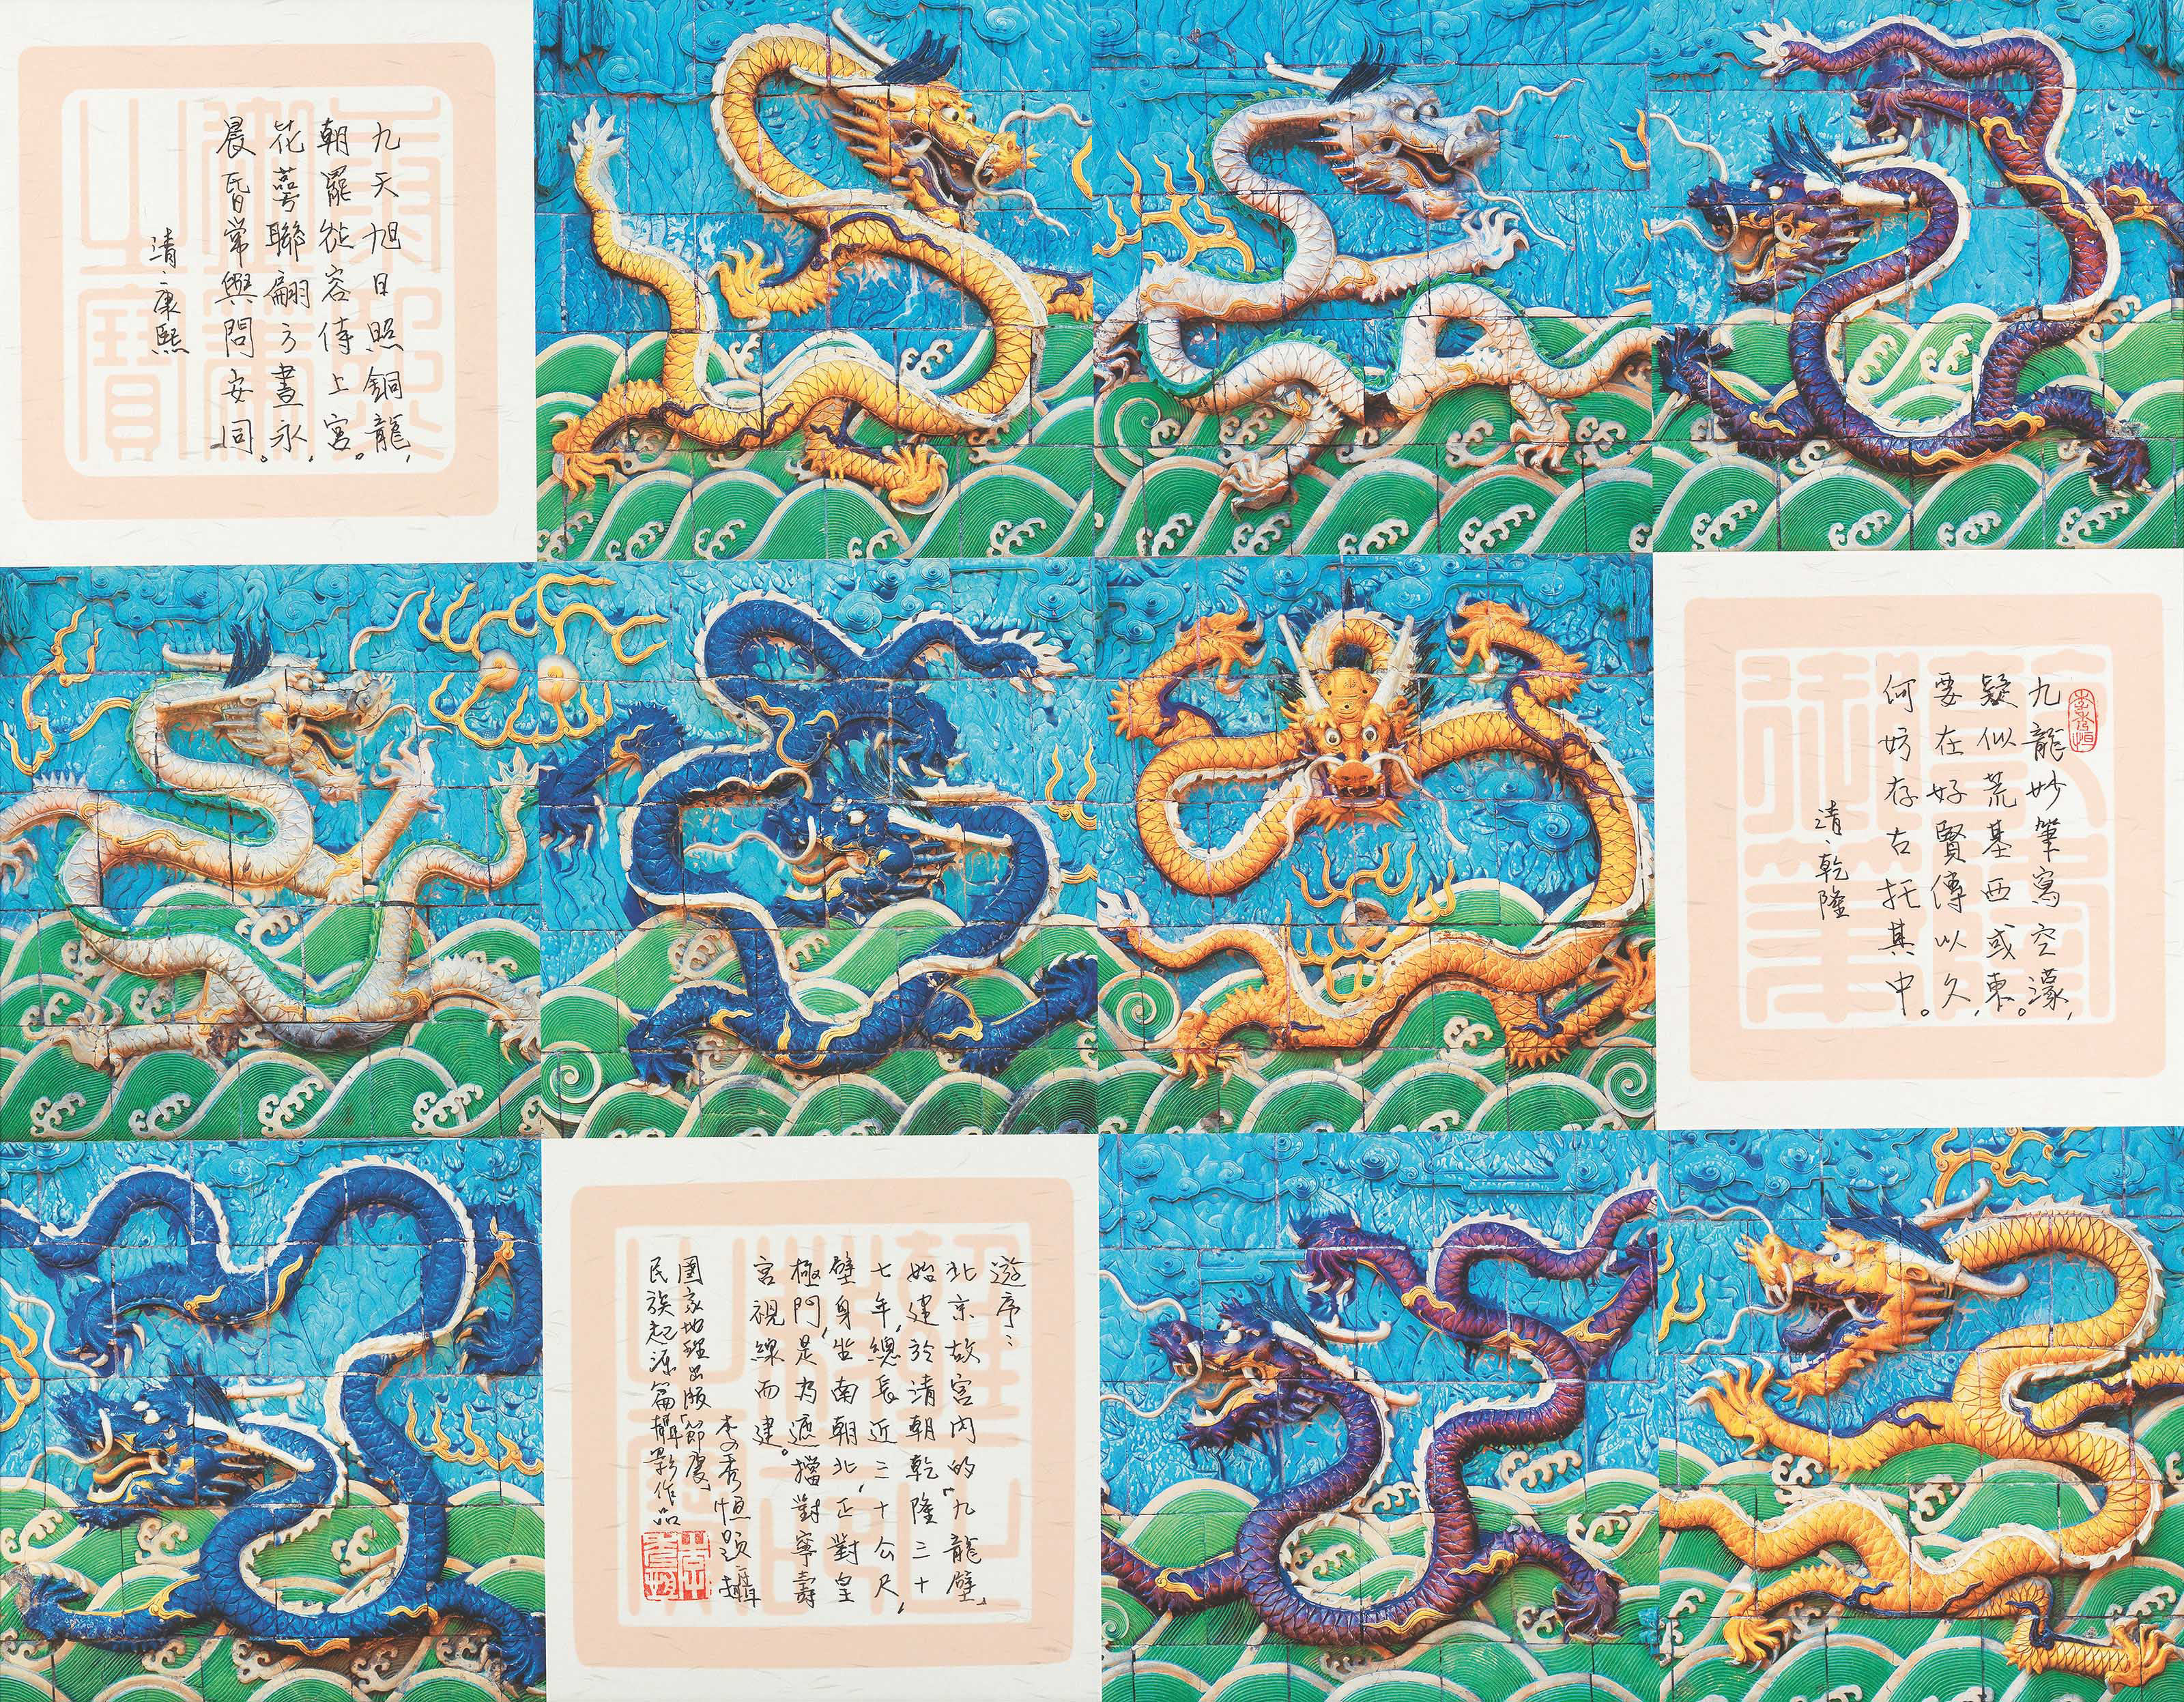 九天旭日照銅龍，
朝罷從容侍上宮。
花萼聯翩方晝永，
晨昏常與問安同。
清、康熙
李秀恒
九龍妙筆寫空濛，
疑似荒基西或東。
要在好賢傳以久，
何妨存古托其中。
清、乾隆
遊序：
北京故宮內的「九龍壁」
始建於清朝乾隆三十
七年，總長近三十公尺，
壁身坐南朝北，正對皇
極門，是為遮擋對寧壽
宮視線而建。
李秀恒題、攝
國家地理出版「節慶」
民族起源篇攝影作品